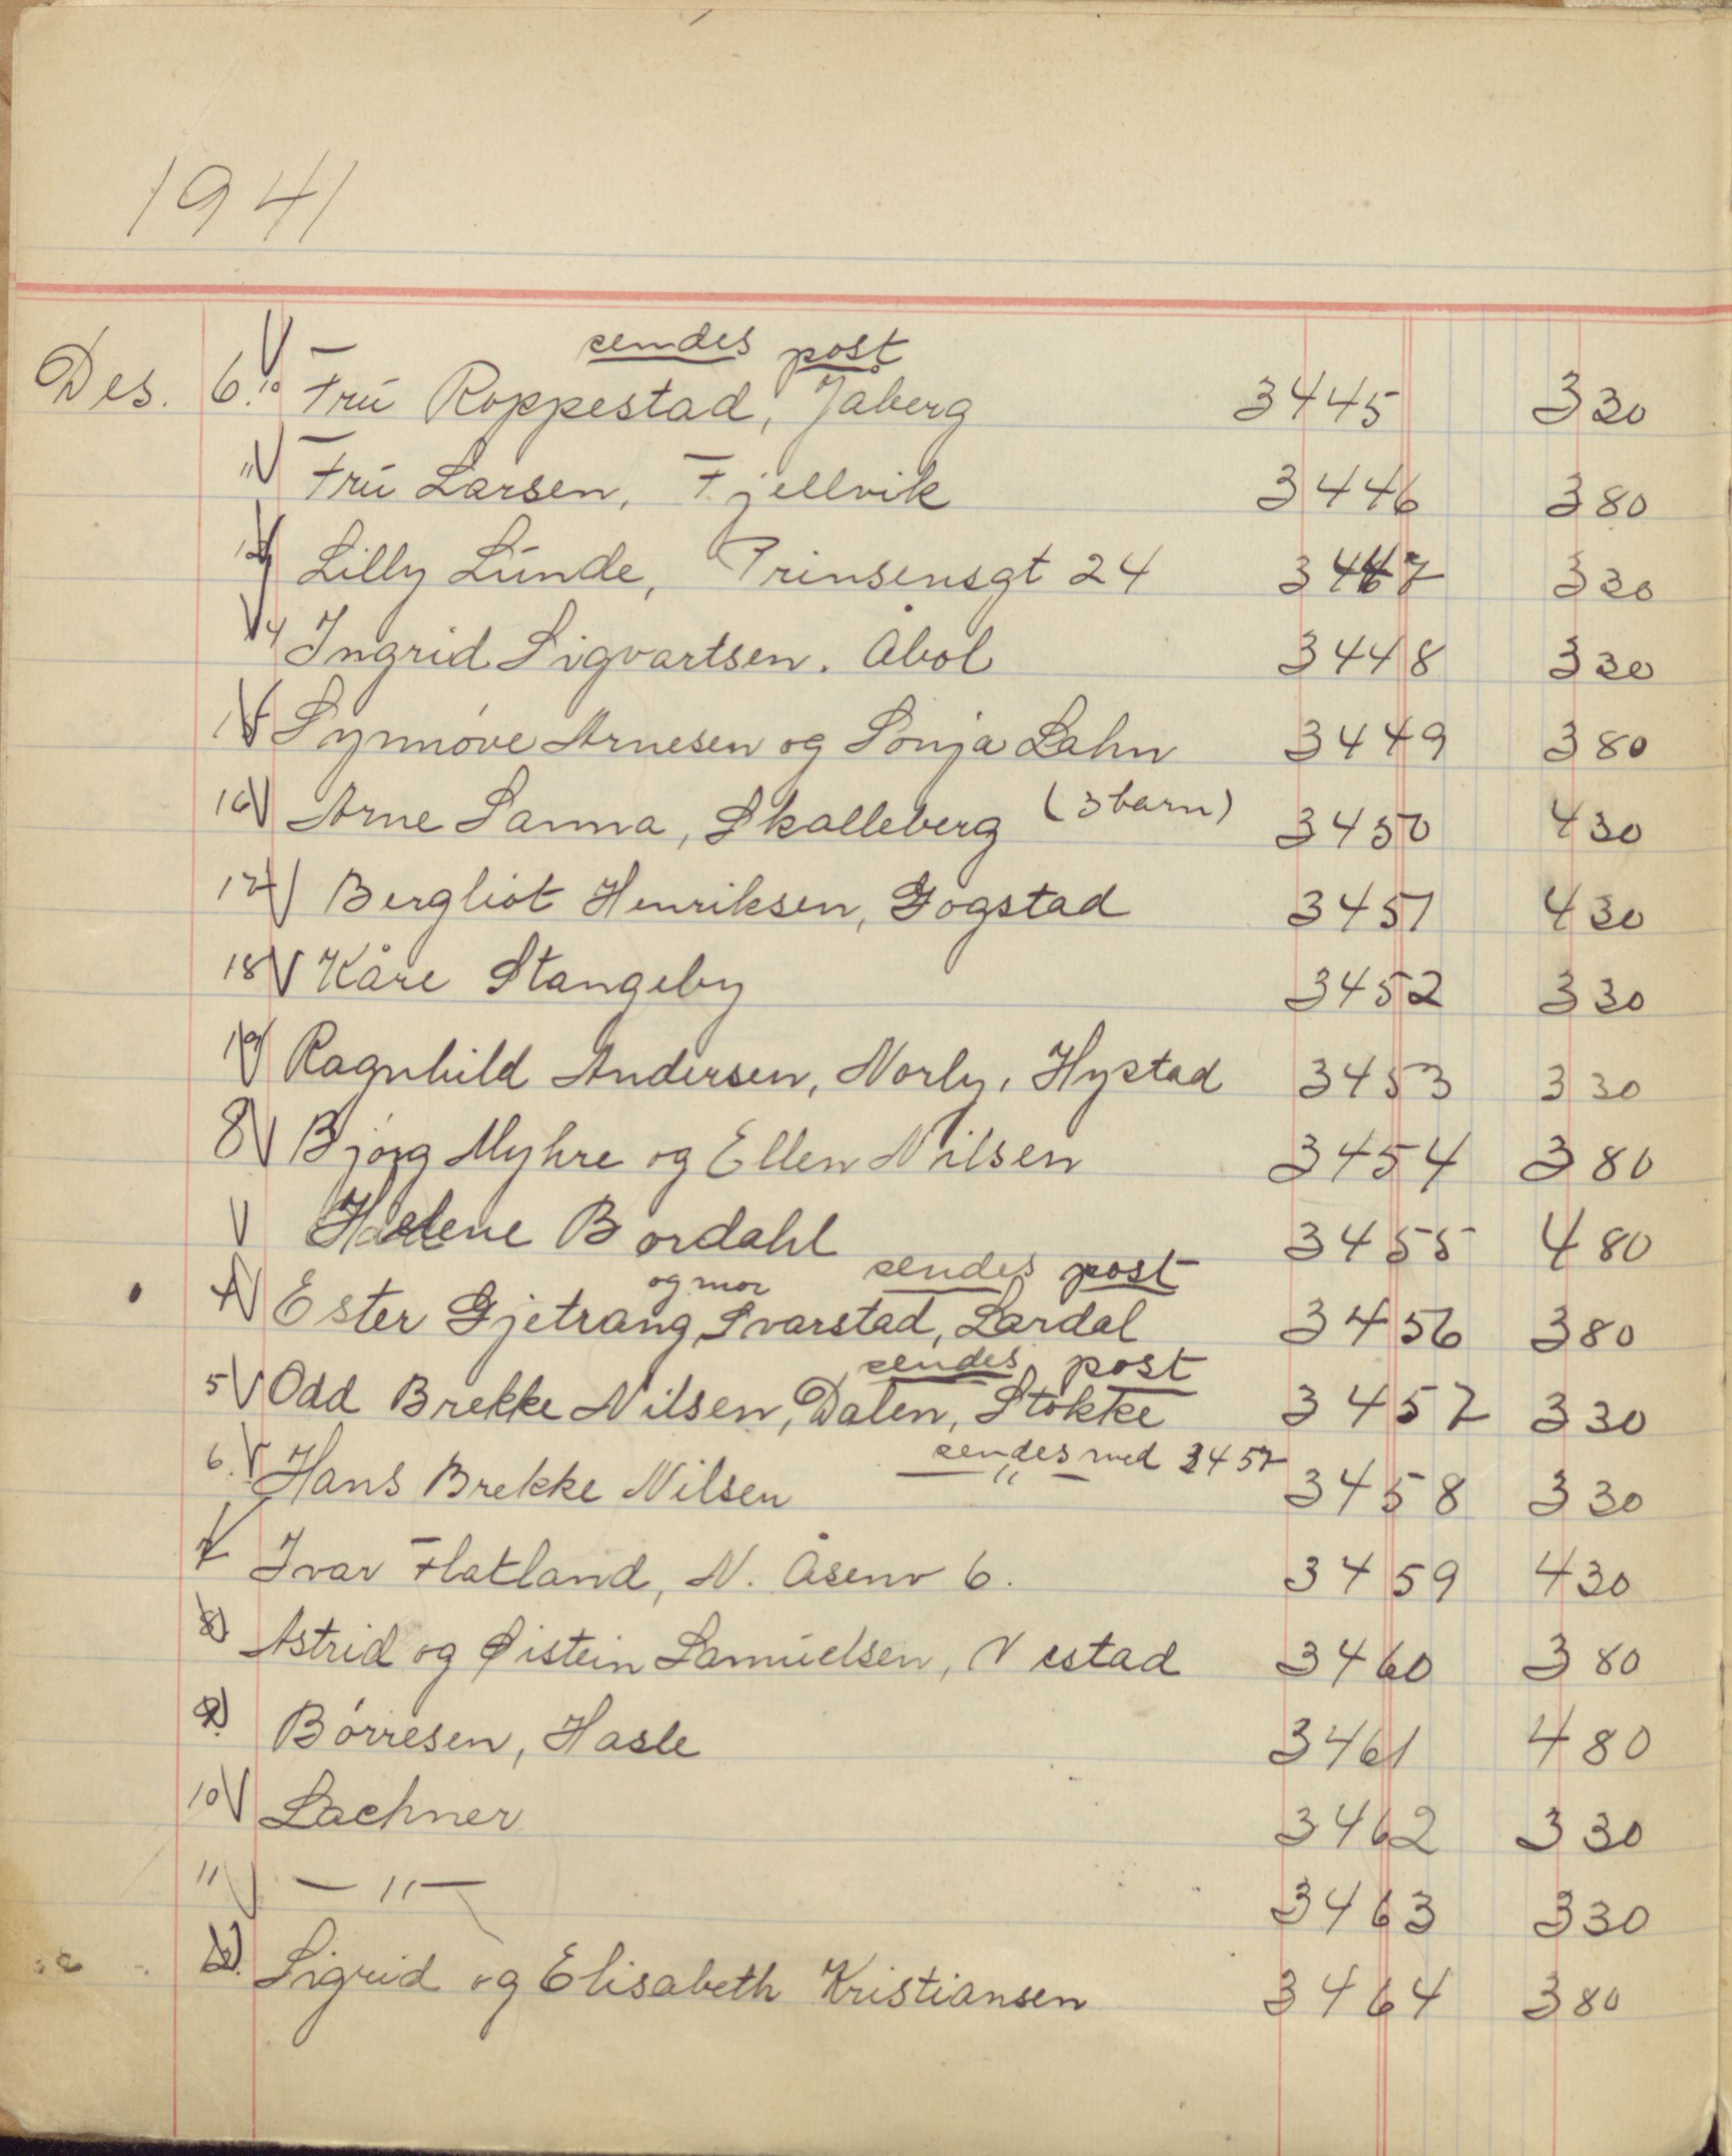 1941
sendes post
Des. 6. 10 Frú Roppestad, Jåberg 3445 330
11 Frú Larsen, Fjellvik 3446 380
Lilly Lúnde, Prinsensgt 24 3447 330
14 Ingrid Sigvartsen. Åbol 3448 330
15 Synnóve Arnesen og Sonja Lahn 3449 380
16 Arne Sanna, Skalleberg (3 barn) 3450 430
17 Bergliot Henriksen, Gogstad 3451 430
18 Kåre Stangeby 3452 330
19 Ragnhild Andersen, Norly, Hystad 3453 330
8 Bjórg Myhre og Ellen Nilsen 3454 380
Helene Bordahl 3455 480
og mor sendes post
Ester Gjetrang, Svarstad, Lardal 3456 380
sendes post
5 Odd Brekke Nilsen, Dalen, Stokke 3457 330
sendes med 3457
6. Hans Brekke Nilsen — " — 3458 330
7 Ivar Flatland, N. Åsenv 6. 3459 430
8 Astrid og Øistein Samúelsen, Vestad 3460 380
9 Bórresen, Hasle 3461 480
10 Lachner 3462 330
11 — " — 3463 330
12. Sigrid og Elisabeth Kristiansen 3464 380